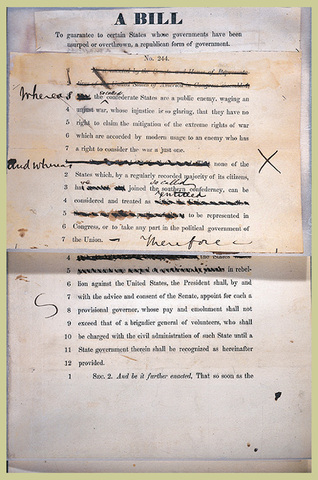 A BILL
To guarantee to certain States whose governments have been
usurped or overthrown, a republican form of government.
No. 244.
1
Whereas the so called
3 confederate States are a public enemy, waging an
4 unjust war, whose injustice is so glaring, that they have no
5 right to claim the mitigation of the extreme rights of war
6 which are accorded by modern usage to an enemy who has
7 a right to consider the war a just one.
and whereas none of the
2 States which, by a regularly recorded majority of its citizens,
so called
3 have joined the southern confederacy, can be
entitled
4 considered and treated as
5 to be represented in
6 Congress, or to take any part in the political government of
7 the Union. — Therefore —
4
5 in rebel-
6 lion against the United States, the President shall, by and
7 with the advice and consent of the Senate, appoint for each a
8 provisional governor, whose pay and emolument shall not
9 exceed that of a brigadier general of volunteers, who shall
10 be charged with the civil administration of such State until a
11 State government therein shall be recognized as hereinafter
12 provided.
1 Sec. 2. And be it further enacted, That so soon as the